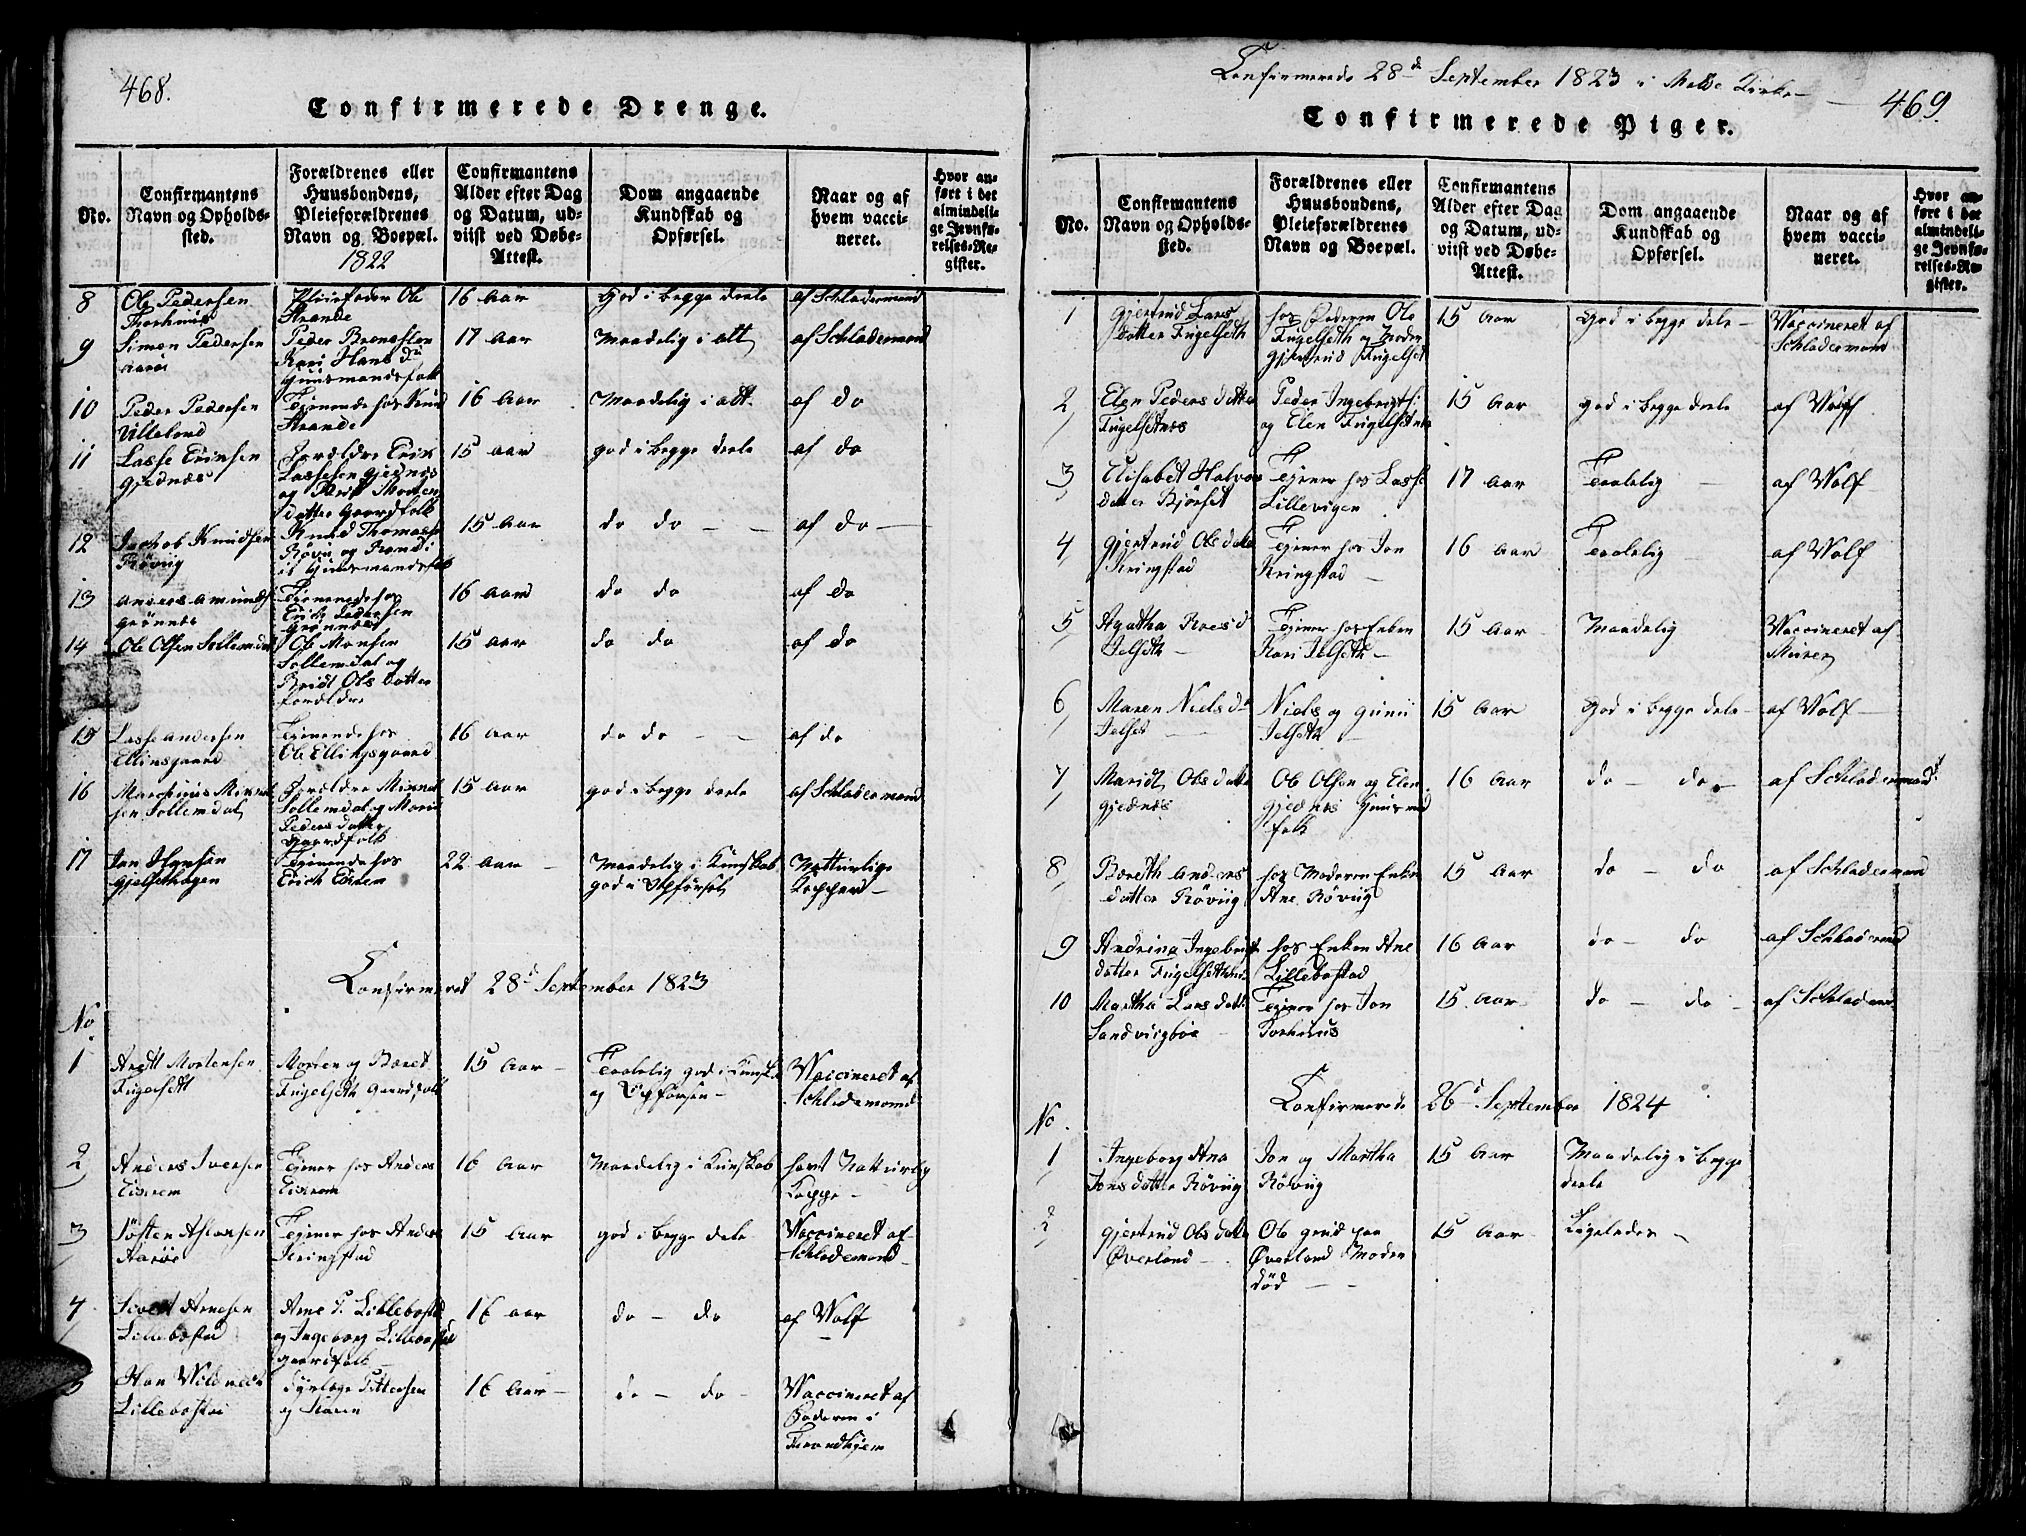 468.
Confirmerede Drenge.
No.
Confirmantens
Navn og Opholds-
sted.
Forældrenes eller
Huusbondens,
Pleieforældrenes
Navn og Boepæl.
1822
Confirmantens
Alder efter Dag
og Datum, ud-
viist ved Døbe-
Attest.
Dom angaaende
Kundskab og
Opførsel.
Naar og af
hvem vacci-
neret.
Hvor an-
ført i det
almindeli-
ge Jevnfø-
relses-Re-
gister.
8
Ole Pedersen
Pleiefader Ole
Strande
16 Aar
God i begge deele
af Schladermund
9
Simon Pedersen
Aarøe
Peder
Kari Hans Dtr
Huusmandsfolk
17 Aar
Maadelig i alt
af Schladermund
10
Peder Pedersen
Tjenende hos Knud
Strande
16 Aar
Maadelig i alt.
af do
11
Lasse Erichsen
Gjednæs
Forældre Erik
Lassesen Gjednæs
og Morten
datter Gaardfolk
15 Aar
god i begge deele
af do
12
Jachob Knudsen
Røviig
Knud Thomassen
Røviig og Randi
Huusmandsfolk
15 Aar
do do - -
af do -
13
Anders Amunds
Grønnæs
Tjenende hos
Erik Pedersen
Grønnæs
16 Aar
do do
af do
14
Ole Olsen Sollemdal
Ole Monsen
Sollemdal og
Ols datter
forældre
15 Aar
do do
af do
15
Lasse Andersen
Ellinsgaard
Tjenende hos
Ole Ellingsgaard
16 Aar
do do - -
af do
16
sen Sollemdal
Forældre
Sollemdal og
Peders datter
Gaardfolk
15 Aar
god i begge deele
af Schladermund
17
Jon Hansen
Gjelsethagen
Tjenende hos
Erich Eisrem
22 Aar -
Maadelig i Kunskab
god i Opførsel
Nattirlige
Kopper -
Confirmeret 28d September 1823
No
1
Mortensen
Fugelsett
Morten og Beret
Fugelseth Gaardfolk
15 Aar -
Taalelig god i Kunsk
og Opførsen -
Vaccineret af
Schladermund
2
Anders Iversen
Eisrem
Tjener hos Anders
Eisrem
16 Aar
Maadelig i Kunskab
havt Nattirlig
Koppe -
3
Aarøe
Tjener hos Anders
Kringstad
15 Aar
god i begge dele
Vaccineret af
Schladermund
4
Sivert Arnesen
Lillebostad
Arne P. Lillebostad
og Ingeborg Lillebostad
Gaardfolk
16 Aar
do - do
af Wolf
5
Lillebostad
Pettersen
og Karen
16 Aar -
do - do -
Vaccineret af
Faderen i
Trondhjem
Confirmerede 28de September 1823 i Molde Kirke -
469.
Confirmerede Piger.
No.
Confirmantens
Navn og Opholds-
sted.
Forældrenes eller
Huusbondens,
Pleieforældrenes
Navn og Boepæl.
Confirmantens
Alder efter Dag
og Datum, ud-
viist ved Døbe-
Attest.
Dom angaaende
Kundskab og
Opførsel.
Naar og af
hvem vacci-
neret.
Hvor an-
ført i det
almindeli-
ge Jevnfø-
relses-Re-
gister.
1
Gjertrud Lars
datter Fugelseth
hos Faderen Ole
Fugelseth og Moder
Gjertrud Fugelset
15 Aar
God i begge dele -
Vaccineret af
Schladermund
2
Elen Peders datter
Fugelsetnæs
Peder Ingebrigts:
og Elen Fugelsetnæs
15 Aar
god i begge deele
af Wolf
3
Elisabet Halvors
datter Bjørset
Tjener hos Lasse
Lillevigen
17 Aar
Taalelig -
af Wolf
4
Gjertrud Ols datter
Kringstad
Tjener hos Jon
Kringstad -
16 Aar
Taalelig -
af Wolf
5
Agatha Roes d
Jelseth -
Tjener hos Enken
Kari Jelseth -
15 Aar
Maadelig
Vaccineret af
6
Maren Niels dr
Jelset -
Niels og Guni
Jelseth -
15 Aar
God i begge dele -
af Wolf -
7
Ols datter
Gjednæs
Ole Olsen og Elen
Gjednæs Huusmd
folk
16 Aar
do - do -
af Schladermund
8
Bereth Anders
datter Røviig
hos Moderen Enken
Ane Røviig
15 Aar
do - do
af Schladermund
9
Andrina Ingebrigt
datter
hos Enken Ane
Lillebostad
16 Aar
do - do
af Schladermd
10
Martha Lars datt:
Sandviigbøe -
Tjener hos Jon
Torhuus
15 Aar
do - do -
af Schladerm
Confirmerede 26d September 1824
No.
1
Ingeborg Ana
Jons datter Røviig
Jon og Martha
Røviig
15 Aar
Maadelig i begge
deele
2
Gjertrud Ols datter
Øverland -
Ole
Øverland Moder
død - -
15 Aar
Ligeledes -